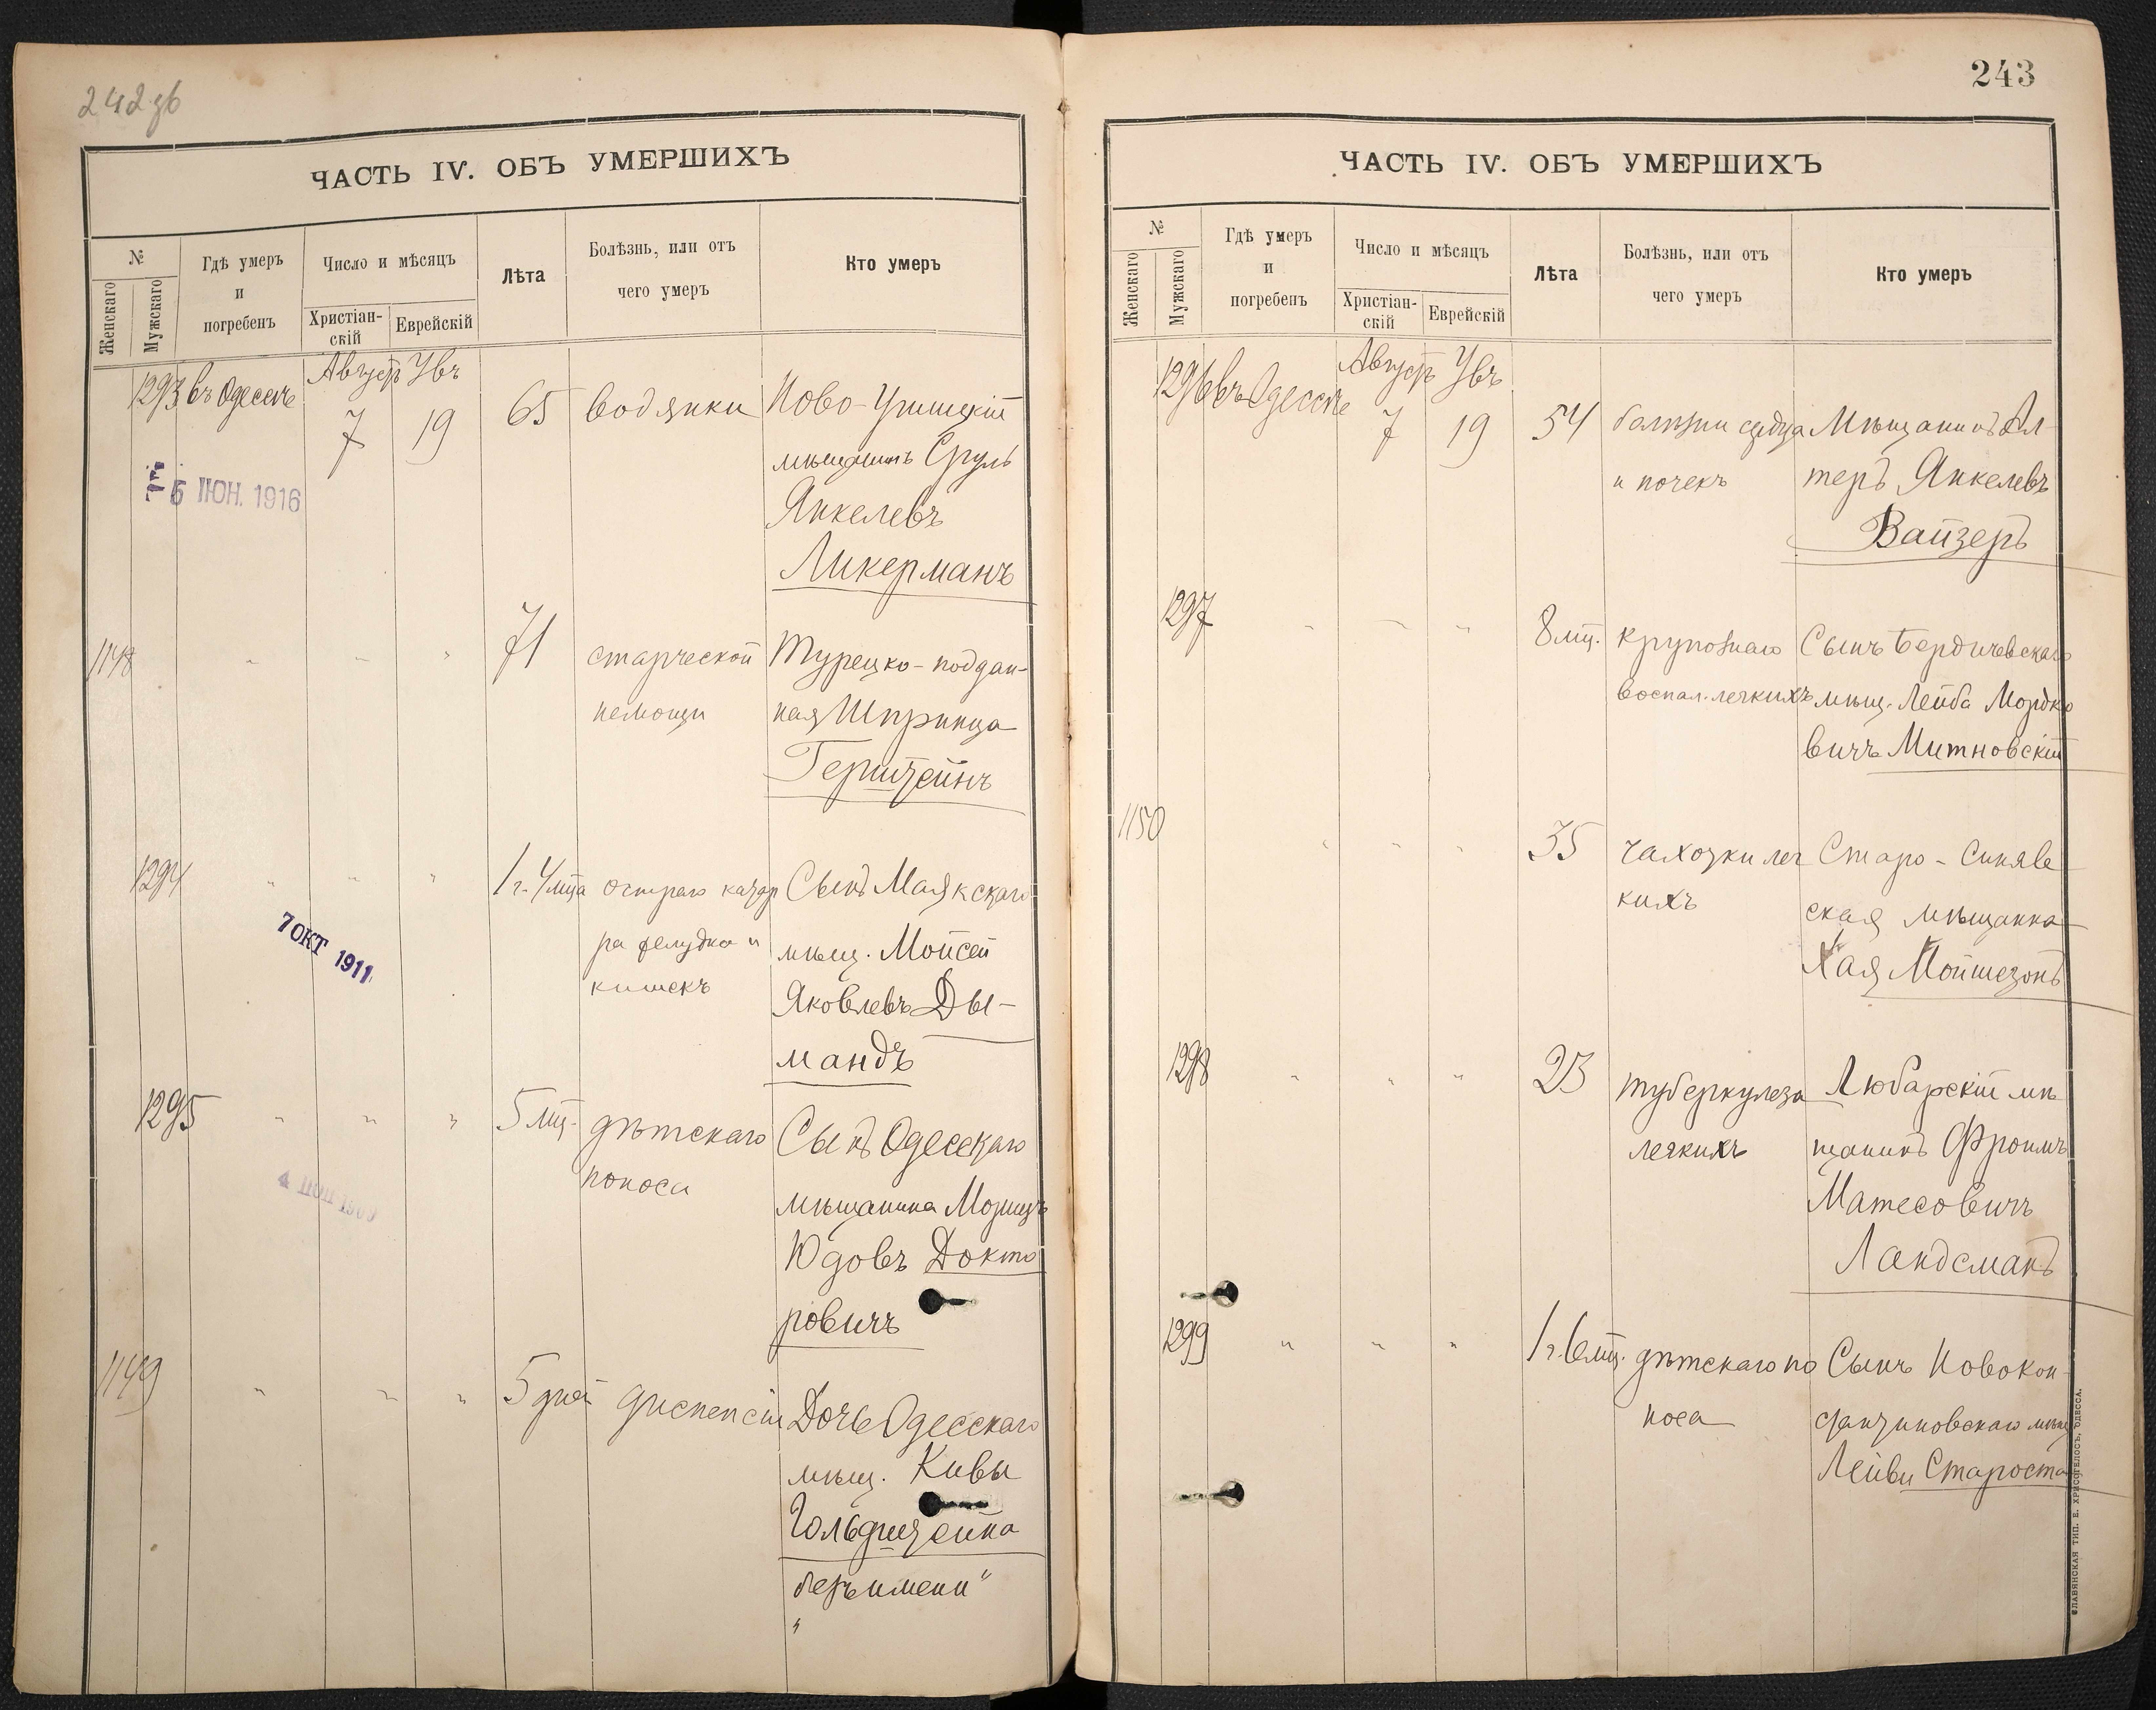 242 об
ЧАСТЬ IV. ОБЪ УМЕРШИХЪ
№
Женскаго
Мужскаго
Гдѣ умеръ
и
погребенъ
Число и мѣсяцъ
Христіан-
скій
Еврейскій
Лѣта
Болѣзнь, или отъ
чего умеръ
Кто умеръ
1293 въ Одессѣ
Августъ
7
19
65
водянки
Ново-Ушицкій
мѣщанинъ Сруль
Янкелевъ
Ликерманъ
5 ІЮН. 1916
1148 " " " 71
старческой
немощи
Турецко-поддан-
ная Шпринца
Герштейнъ
1294 " " " 1 г. 4 мца
остраго катар
ра желудка и
кишекъ
Сынъ Маякскаго
мѣщ. Мойсей
Яковлевъ Ды-
мандъ
7 ОКТ 1911
1295 " " " 5 мц.
дѣтскаго
поноса
Сынъ Одесскаго
мѣщанина Морицъ
Юдовъ Докто
ровичъ
1149 " " " 5 дней
диспепсіи
Дочь Одесскаго
мѣщ. Кивы
Гольдштейна
безъ имени"
243
ЧАСТЬ IV. ОБЪ УМЕРШИХЪ
№
Женскаго
Мужскаго
Гдѣ умеръ
и
погребенъ
Число и мѣсяцъ
Христіан-
скій
Еврейскій
Лѣта
Болѣзнь, или отъ
чего умеръ
Кто умеръ
1296 въ Одессѣ
Августъ
7
19
54
болѣзни сердца
и почекъ
Мѣщанинъ Ал-
теръ Янкелевъ
Вайзеръ
1297 " " " 8 мц.
крупознаго
воспал. легкихъ
Сынъ Бердичевскаго
мѣщ. Лейба Мордко
вичъ Митновскій
1150 " " " 35
чахотки лег
кихъ
Старо-Синяв
ская мѣщанка
Хая Мойшезонъ
1298 " " " 23
туберкулеза
легкихъ
Любарскій мѣ
щанинъ Фроимъ
Матесовичъ
Ландсманъ
1299 " " " 1 г. 6 мц.
дѣтскаго по
носа
Сынъ Новокон
стантиновскаго мѣщ
Лейви Староста
СЛАВЯНСКАЯ ТИП. Е. ХРИСОГЕЛОСЪ, ОДЕССА.